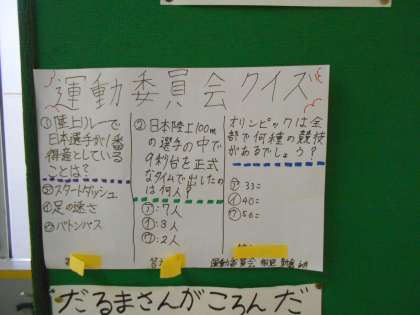 運動委員会クイズ
①陸上リレーで
日本選手が1番
得意としている
ことは?
㋐スタートダッシュ
㋑足の速さ
㋒バトンパス
②日本陸上100m
の選手の中で
9秒台を正式
なタイムで出したの
は何人?
㋐:7人
㋑:3人
㋒:2人
オリンピックは全
部で何種の競技
があるでしょう?
㋐33こ
㋑40こ
㋒56こ
運動委員会
だるまさんがころんだ